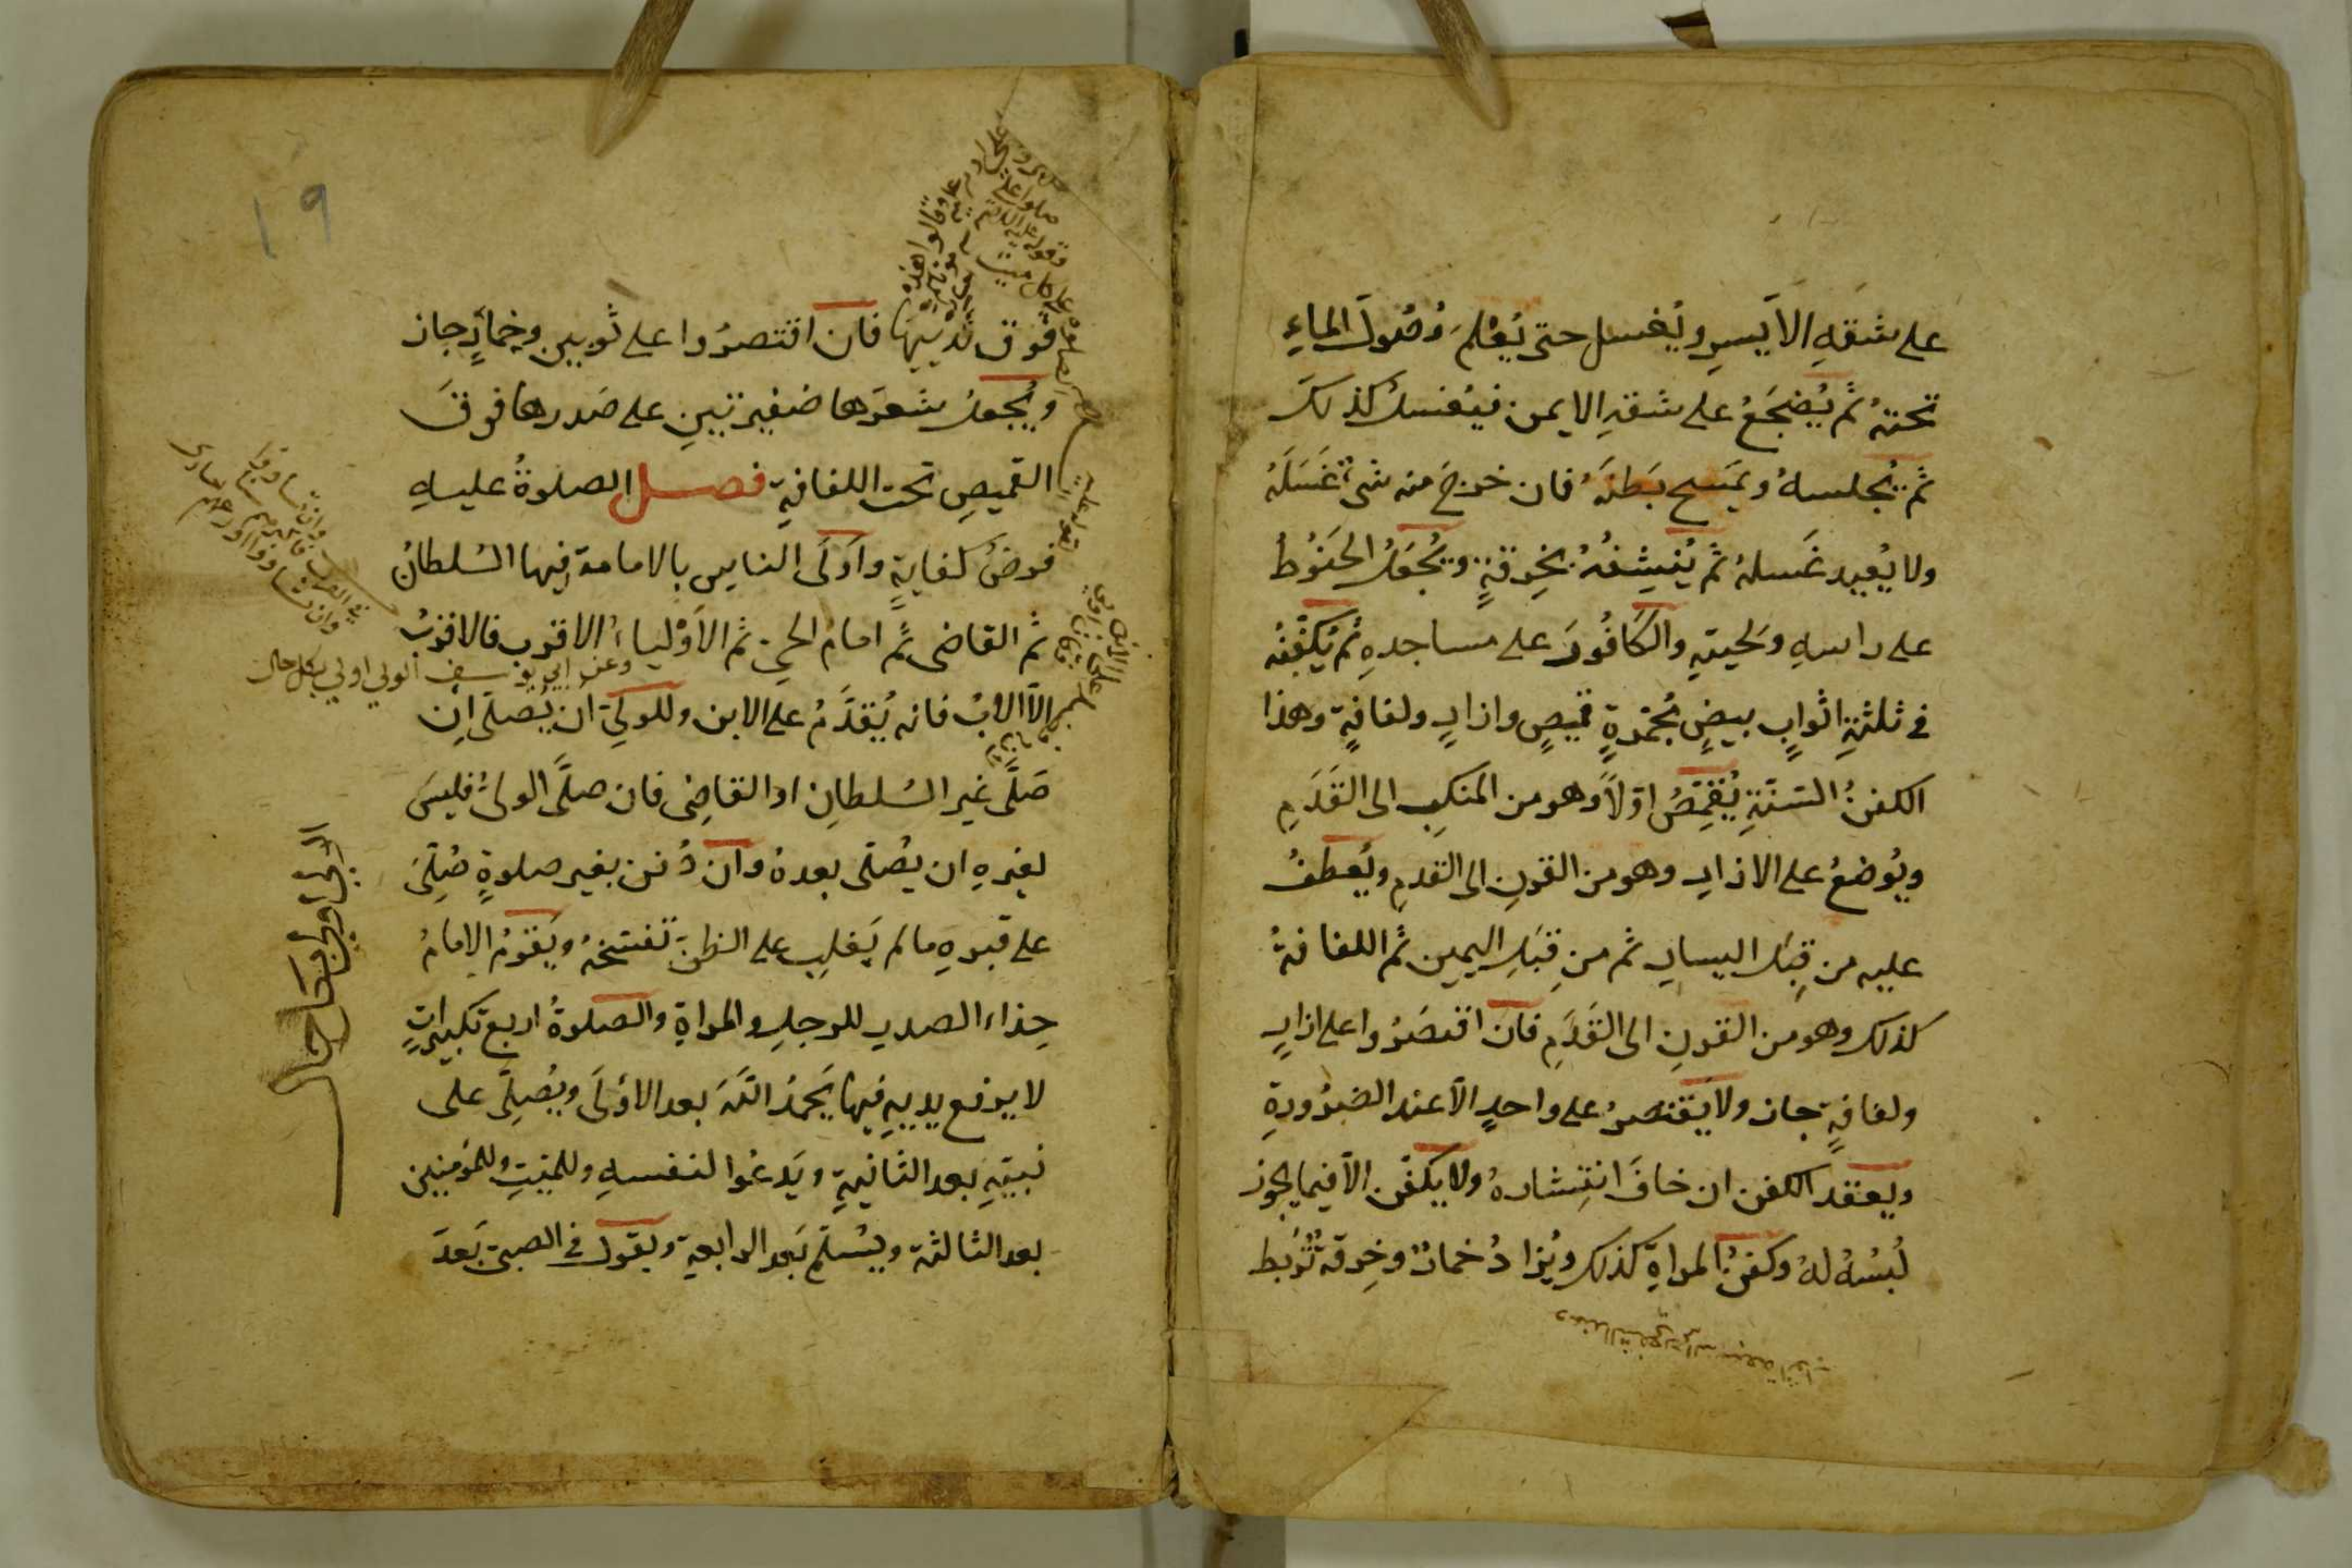 على شقهِ الاَيسرِ ويُغسل حتى يُعْلمَ وُصُولُ الماءِ
تحتهُ ثم يُضجَعُ على شقهِ الايمن فيُغسلُ كذلكَ
ثم يُجلسهُ ويَمسح بَطنَهُ فان خرجَ منه شئٌ غَسَلَهُ
ولا يُعيد غَسلهُ ثم يُنشِفُهُ بخِرقةٍ ويُجعَلُ الحَنُوطُ
على راسهِ ولحيتهِ والكَافُورَ على مساجدهِ ثم يُكَفِّنُه
فى ثلثةِ اثوابٍ بيضٍ مُجَمَّرةٍ قميصٍ وازارٍ ولفافةٍ وهذا
الكفنُ السُنّةِ يُقمَّصُ اوّلاً وهو من المنكبِ الى القَدَمِ
ويُوضعُ على الازارِ وهو من القرنِ الى القدمِ ويُعطفُ
عليه من قِبَلِ اليسارِ ثم من قِبَلِ اليمين ثم اللفافةُ
كذلك وهو من القرنِ الى القَدَمِ فان اقتصَرُوا على ازارٍ
ولفافةٍ جاز ولا يَقتصرُ على واحدٍ الاّ عند الضرُورةِ
ويعقد الكفن ان خافَ انتِشارهُ ولا يكفّن الاّ فيما يجوز
لُبْسُهُ لهُ وكفنُ المراةِ كذلك ويُزادُ خمارٌ وخِرقةٌ تُرْبَط
فوق ثدييها فان اقتصرُوا على ثوبين وخمارٍ جاز
ويُجعلُ شعرَها ضفيرتينِ على صَدرها فوقَ
القميصِ تحت اللفافةِ فصل الصلوةُ عليهِ
فرضُ كفايةٍ واَوْلَى الناسِ بالامامةِ فيها السُلطانُ
ثم القاضى ثم امامُ الحىّ ثم الاَوْلياءُ الاقرب فالاقربُ
وعن ابي يوسف الولي اولي بكل حال
الاّ الابُ فانه يُقدَّمُ على الابن وللولىّ ان يُصلّى اِن
صَلَّى غير السُلطانِ او القاضِى فان صلَّى الولىُّ فليسَ
لغيرهِ ان يصُلّى بعدهُ وان دُفن بغير صلوةٍ صُلِّىَ
على قبرهِ ما لم يَغلِب على الظنّ تفسّخهُ ويَقوُمُ الامامُ
حِذاءَ الصدرِ للرجلِ والمراةِ والصلوةُ اربع تكبيراتٍ
لا يرفع يديهِ فيها يَحمدُ اللّهَ بعد الاوُلَى ويُصلِّى على
نبيّهِ بعد الثانيةِ ويَدعُوا لنفسهِ وللميّتِ وللمؤمنين
بعد الثالثة ويسُلّم بَعد الرابعةِ ويقول فى الصبىّ بَعدَ
١٩